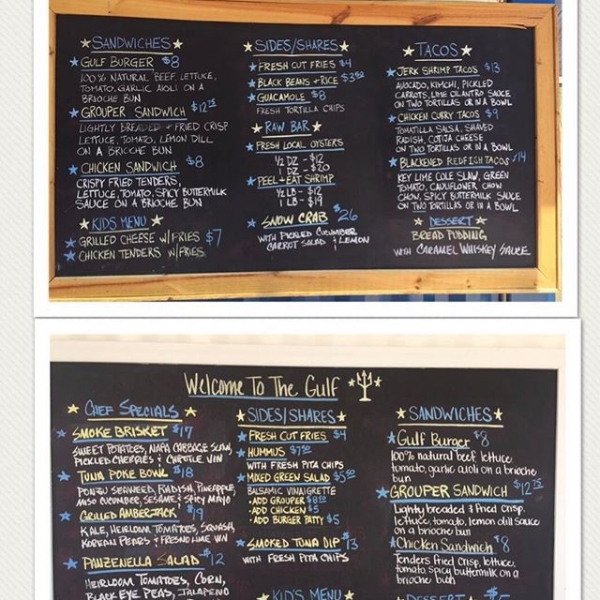 SANDWICHES
GULF BURGER $8
100% NATURAL BEEF, LETTUCE,
TOMATO, GARLIC AIOLI ON A
BRIOCHE BUN
GROUPER SANDWICH $12.75
LIGHTLY BREADED + FRIED CRISP
LETTUCE, TOMATO, LEMON DILL
ON A BRIOCHE BUN
CHICKEN SANDWICH $8
CRISPY FRIED TENDERS,
LETTUCE, TOMATO, SPICY BUTTERMILK
SAUCE ON A BRIOCHE BUN
KIDS MENU
GRILLED CHEESE W/FRIES $7
CHICKEN TENDERS W/FRIES
SIDES/SHARES
FRESH CUT FRIES $4
BLACK BEANS + RICE $3.50
GUACAMOLE $8
FRESH TORTILLA CHIPS
RAW BAR
FRESH LOCAL OYSTERS
1/2 DZ - $12
1 DZ - $20
PEEL + EAT SHRIMP
1/2 LB - $12
1 LB - $19
SNOW CRAB $26
WITH PICKLED CUCUMBER
CARROT SALAD + LEMON
TACOS
JERK SHRIMP TACOS $13
AVOCADO, KIMCHI, PICKLED
CARROTS, LIME CILANTRO SAUCE
ON TWO TORTILLAS OR IN A BOWL
CHICKEN CURRY TACOS $9
TOMATILLA SALSA, SHAVED
RADISH, COTIJA CHEESE
ON TWO TORTILLAS OR IN A BOWL
BLACKENED REDFISH TACOS $14
KEY LIME COLE SLAW, GREEN
TOMATO, CAULIFLOWER CHOW
CHOW, SPICY BUTTERMILK SAUCE
ON TWO TORTILLAS OR IN A BOWL
DESSERT
BREAD PUDDING
WITH CARAMEL WHISKEY SAUCE
Welcome To The Gulf
CHEF SPECIALS
SMOKE BRISKET $17
SWEET POTATOES, NAPA CABBAGE SLAW,
PICKLED CHERRIES & CHIPOTLE VIN
TUNA POKE BOWL $18
PONZU SEAWEED, RADISH, PINEAPPLE,
MISO CUCUMBER, SESAME & SPICY MAYO
GRILLED AMBERJACK $19
KALE, HEIRLOOM TOMATOES, SQUASH,
KOREAN PEARS & FRESNO LIME VIN
PANZENELLA SALAD $12
HEIRLOOM TOMATOES, CORN,
BLACK EYE PEAS, JALAPENO
SIDES/SHARES
FRESH CUT FRIES $4
HUMMUS $7.50
WITH FRESH PITA CHIPS
MIXED GREEN SALAD $5.50
BALSAMIC VINAIGRETTE
- ADD GROUPER $8.75
- ADD CHICKEN $5
- ADD BURGER PATTY $5
SMOKED TUNA DIP $13
WITH FRESH PITA CHIPS
KID'S MENU
SANDWICHES
Gulf Burger $8
100% natural beef lettuce
tomato, garlic aioli on a brioche
bun
GROUPER SANDWICH $12.75
Lightly breaded & Fried Crisp,
lettuce, tomato, lemon dill Sauce
on a brioche bun
Chicken Sandwich $8
Tenders Fried Crisp, lettuce,
tomato Spicy buttermilk on a
brioche bun
DESSERT $5